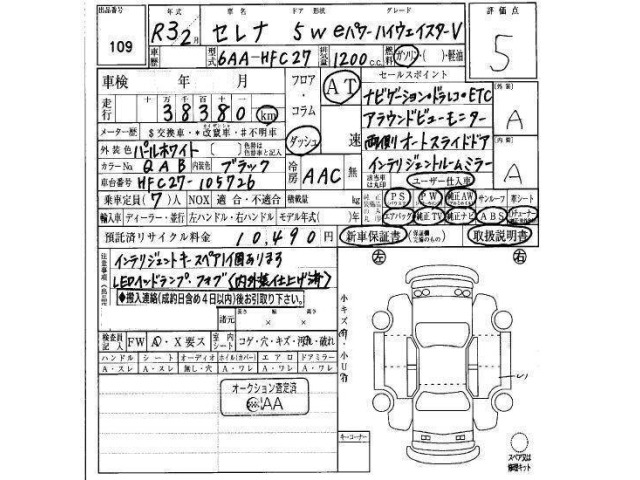 出品番号 109
年式 R3/2月 車名 セレナ ドア 5 形状 W グレード e-パワーハイウェイスターV
評価点 5
車歴 型式 6AA-HFC27 排気量 1200 c.c. 燃料 ガソリン・( )・軽油
車検 年 月
フロア・コラム ダッシュ
AT 速
セールスポイント
走行 十万 万 千 百 十 一 38380 km
ナビゲーション・ドラレコ・ETC
アラウンドビューモニター
両側オートスライドドア
インテリジェントルームミラー
外装 A
内装 A
メーター歴 $交換車・*改竄車・#不明車
外装色 パールホワイト 〔 〕 色替は色替前と記入
カラーNo QAB 内装色 ブラック
冷房 AAC
該当車は丸印 ユーザー仕入車
車台番号 HFC27-105726
乗車定員(7)人 NOX 適合・不適合 積載量 kg
PS PW 純正AW サンルーフ 革シート
輸入車 ディーラー・並行 左ハンドル・右ハンドル モデル年式( )年
エアバッグ 純正TV 純正ナビ ABS
預託済リサイクル料金 10,490円 新車保証書 (保証欄 交換のもの) 取扱説明書
注意事項(出品店)
インテリジェントキースペア1個あります
LEDインドランプ.フォグ(内外装仕上げ済)
◆搬入連絡(成約日含め4日以内)後お引取り下さい。
諸元 長さ × 幅 × 高さ
左 右
小キズ有・小U有
検査員記入 FW A・X要ス 室内シート コゲ・穴・キズ・汚れ・破れ
ハンドル シート オーディオ ホイル(カバー) エアロ ドアミラー
A・スレ A・スレ 無し・穴 A・ワレ A・ワレ A・ワレ
オークション査定済
AA
キーコーナー
スペア又は修理キット